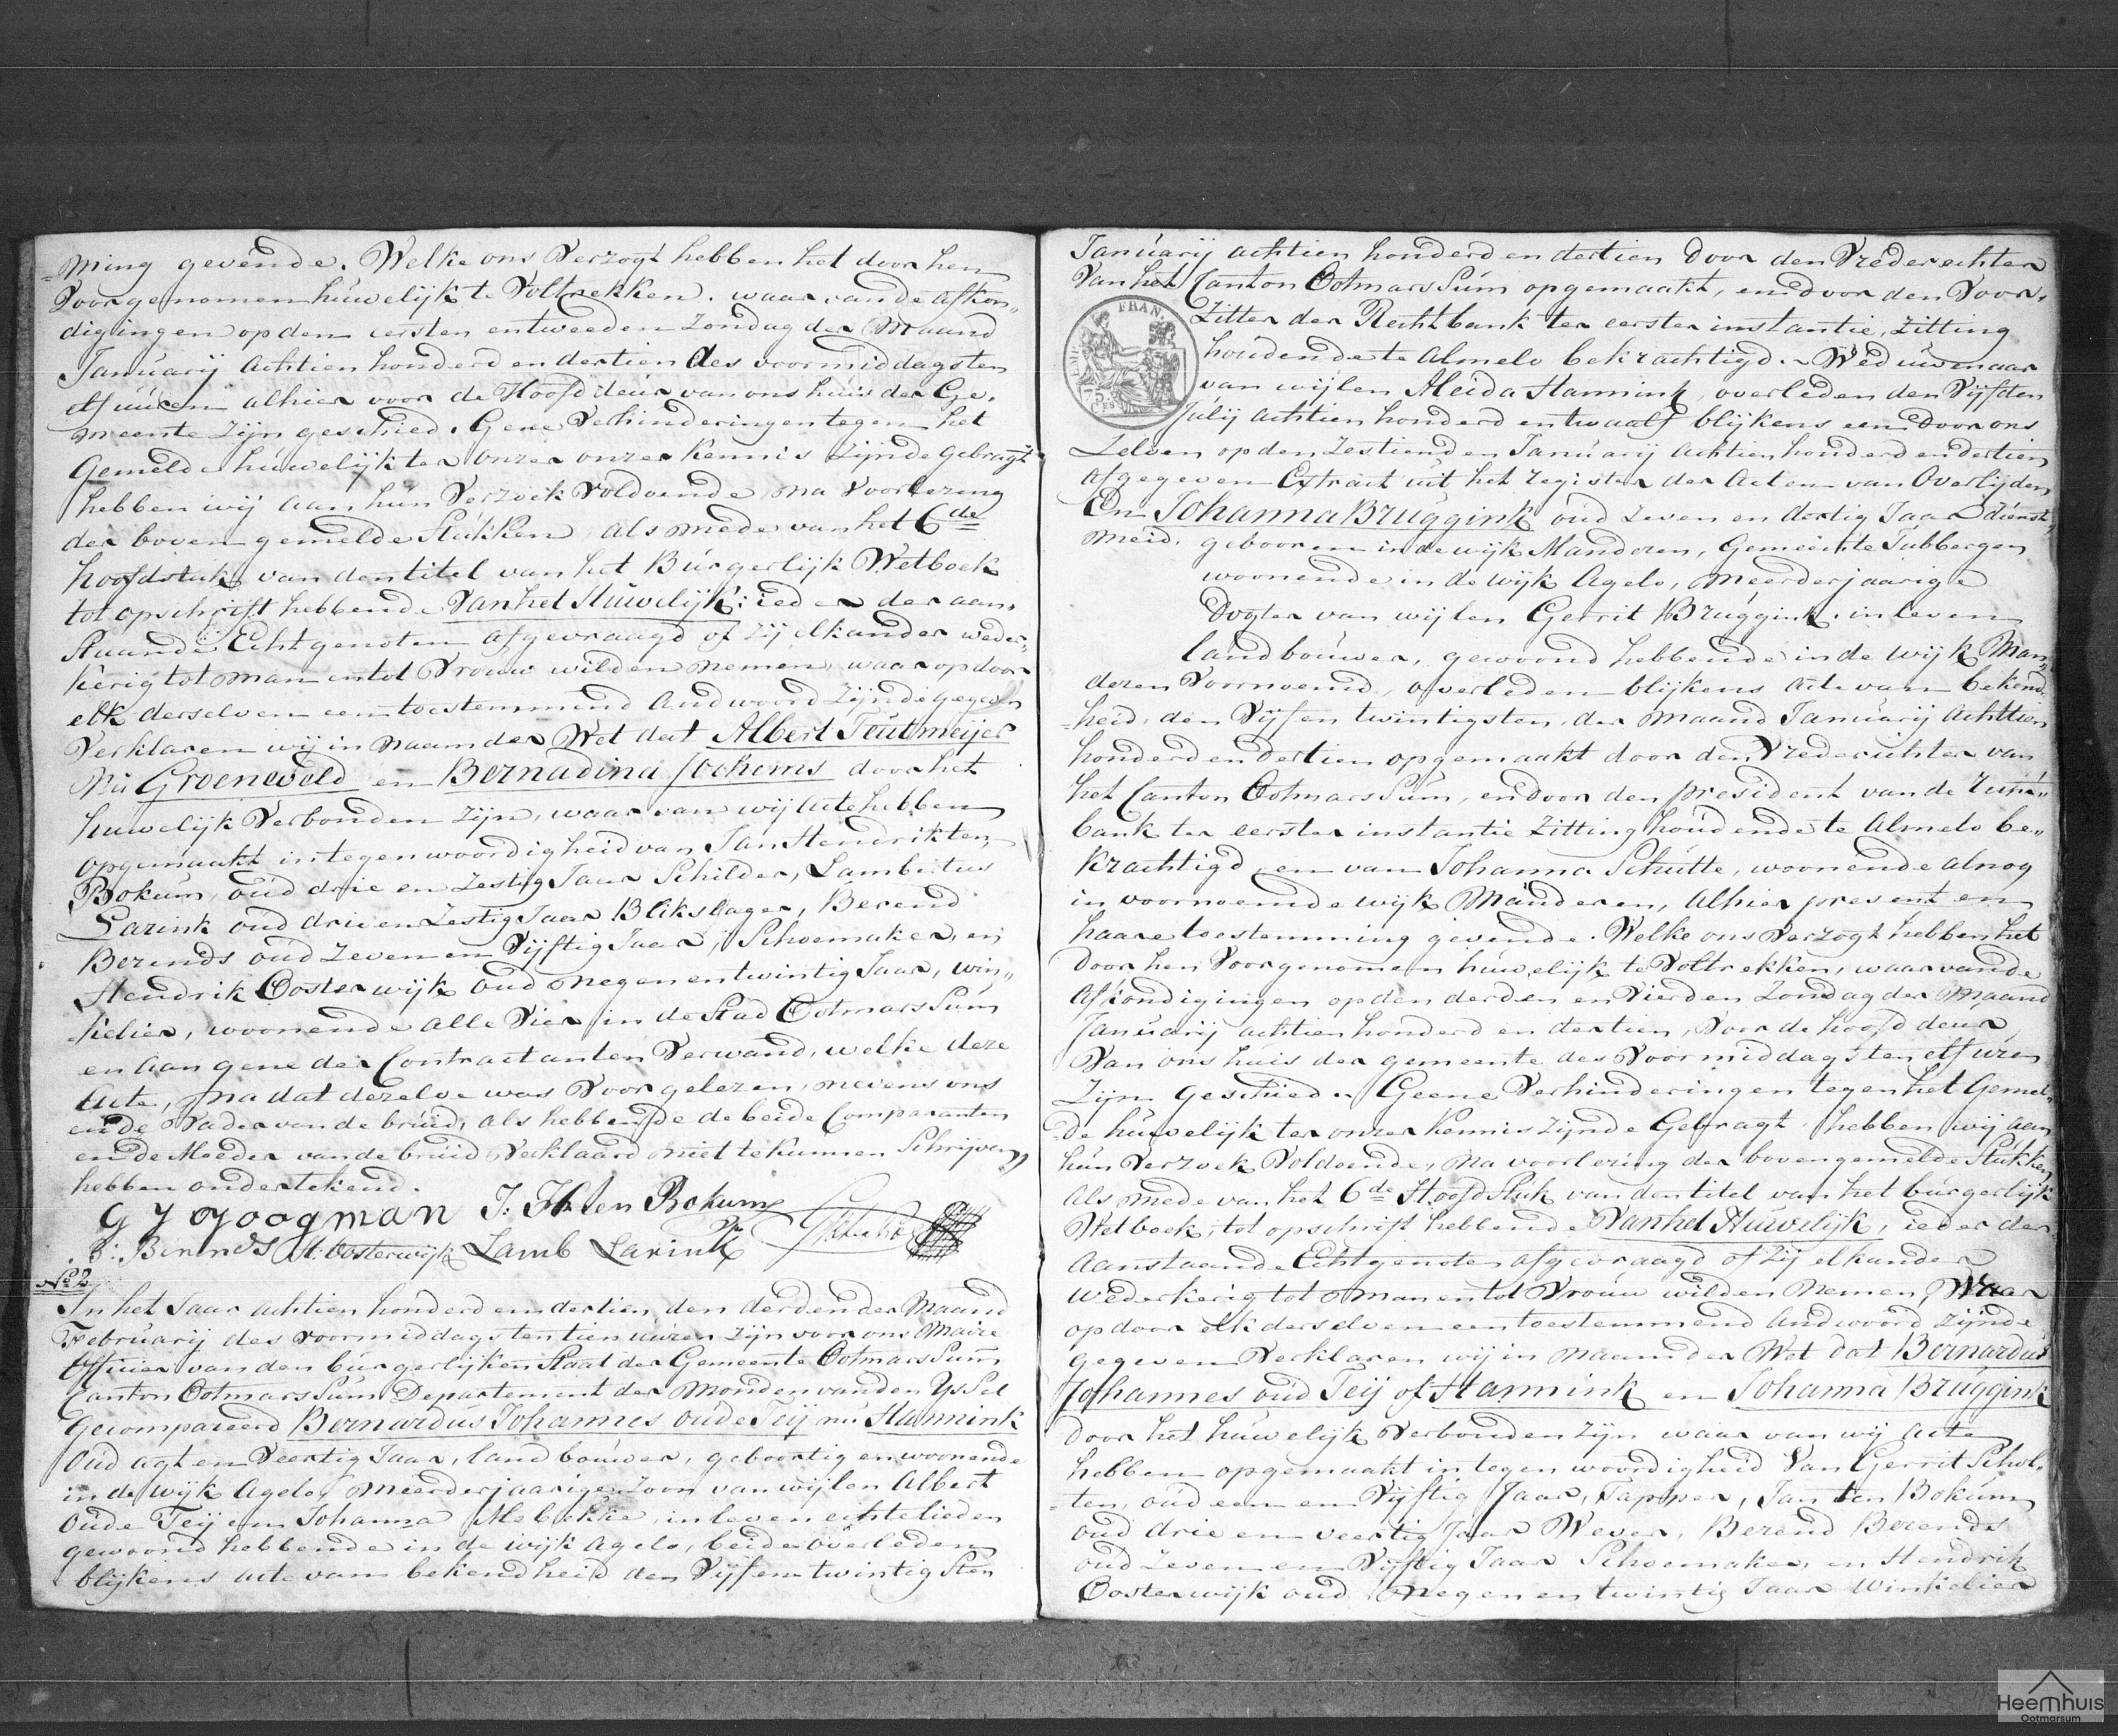 =ming gevende. Welke ons Verzogt hebben het door hen
Voorgenomen huwelijk te Voltrekken. waar van de afkon„
digingen op den eersten en tweeden Zondag der Maand
Januarij achtien honderd en dertien des voormiddags ten
elf uuren alhier voor de Hoofd deur van ons huis der Ge„
meente Zijn geschied. Gene Verhinderingen tegen het
Gemelde huwelijk ter onzer onzer Kennis Zijnde gebragt
hebben wij aan hun Verzoek Voldoende, na Voorlezing
der boven gemelde Stukken, als mede van het 6de
hoofdstuk van den titel van het Burgerlijk Wetboek
tot opschrift hebbende Van het Huwelijk: ieder der aan„
Staande Echtgenoten afgevraagd of zij elkander weder„
kerig tot man en tot Vrouw wilden nemen, waar op door
elk derselven een toestemmend Andwoord Zijnde gegeven
Verklaren wij in naam der Wet dat Albert Teutmeijer
Nu Groeneveld en Bernadina Jochems door het
huwelijk Verbonden Zijn, waar van wij acte hebben
opgemaakt in tegenwoordigheid van Jan Hendrik ten
Bokum, oud drie en Zestig Jaar Schilder, Lambertus
Larink oud drie en Zestig Jaar Blikslager, Berend
Berends oud Zeven en Vijftig Jaar, Schoemaker, en
Hendrik Oosterwijk oud negen en twintig Jaar, win„
kelier, woonende alle Vier in de Stad Ootmarssum
en aan gene der Contractanten Verwand, welke deze
Acte, na dat dezelve was Voorgelezen, nevens ons
en de Vader van de bruid, als hebbende de beide Comparanten
en de Moeder van de bruid Verklaard niet te kunnen Schrijven,
hebben ondertekend.
G J Googman J: H: ten Bokum
B: Berends H: Oosterwijk Lamb Larink
No 2
In het Jaar achtien honderd en dertien, den derden der Maand
Februarij des voormiddags ten tien uuren zijn voor ons Maire
Officier van den burgerlijken Staat der Gemeente Ootmarssum
Canton Ootmarssum Departement der Monden van den Yssel
Gecompareerd Bernardus Johannes oude Teij nu Hannink
Oud agt en Veertig Jaar, landbouwer, geboortig en woonende
in de wijk Agelo, meerderjaarige Zoon van wijlen Albert
Oude Teij en Johanna Mebekke, in leven echtelieden
gewoond hebbende in de wijk Agelo, beide overleden
blijkens acte van bekendheid den Vijf en twintigsten
Januarij achtien honderd en dertien Door den Vrederechter
Van het Canton Ootmarssum opgemaakt, en door den Voor„
Zitter der Rechtbank ter eerster instantie, Zitting
houdende te Almelo bekrachtigd. Weduwenaar
van wijlen Aleida Hannink, overleden den Vijfden
Julij achtien honderd en twaalf blijkens een Door ons
Zelven op den Zestienden Januarij achtien honderd en dertien
afgegeven Extrait uit het register der Acten van Overlijden
En Johanna Bruggink oud Zeven en dertig Jaar Dienst„
meid, gebooren in de wijk Manderen, Gemeente Tubbergen
woonende in de wijk Agelo, Meerderjaarige
Dogter van wijlen Gerrit Bruggink, in leven
landbouwer, gewoond hebbende in de wijk Man„
deren Voornoemd, overleden blijkens Acte van bekend„
=heid, den Vijf en twintigsten der Maand Januarij achttien
honderd en dertien opgemaakt door den Vrederichter van
het Canton Ootmarssum, en door den president van de
bank ter eerster instantie Zitting houdende te Almelo be„
krachtigd, en van Johanna Schutte, woonende alnog
in voornoemde wijk Manderen, Alhier present en
haare toestemming gevende. Welke ons Verzogt hebben het
Door hen Voorgenomen huwelijk te Voltrekken, waar van de
afkondigingen op den derden en Vierden Zondag der Maand
Januarij achtien honderd en dertien, Voor de hoofd deur
Van ons huis der gemeente des Voormiddags ten elf uren
Zijn Geschied. Geene Verhinderingen tegen het Gemel„
=de huwelijk ter onzer Kennis Zijnde Gebragt hebben wij aan
hun Verzoek Voldoende, na voorlezing der boven gemelde Stukken
Als mede van het 6de Hoofdstuk van den titel van het burgerlijk
Wetboek, tot opschrift hebbende Van het Huwelijk, ieder der
Aanstaande Echtgenoten afgevraagd of Zij elkander
Wederkerig tot man en tot Vrouw wilden Nemen, Waar
op door elk derselven een toestemmend Andwoord Zijnde
gegeven Verklaren wij in naam der Wet dat Bernardus
Johannes oud Teij of Hannink en Johanna Bruggink
Door het huwelijk Verbonden Zijn waar van wij Acte
hebben opgemaakt in tegenwoordigheid Van Gerrit Schol„
=ten, oud een en Vijftig Jaar, Tapper, Jan ten Bokum
oud drie en veertig Jaar Wever, Berend Berends
oud Zeven en Vijftig Jaar Schoemaker, en Hendrik
Oosterwijk oud Negen en twintig Jaar Winkelier
FRAN.
75
CES
Heemhuis
Ootmarsum